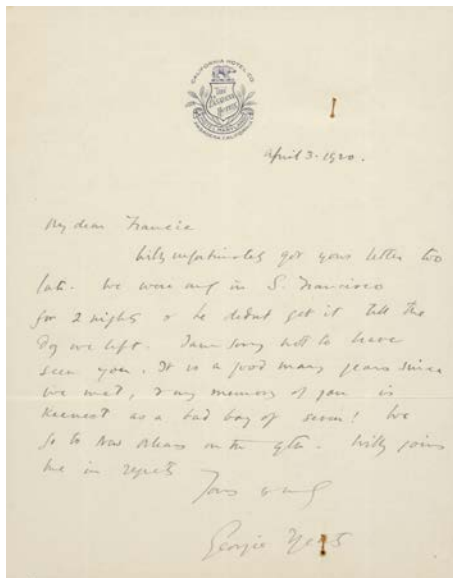 CALIFORNIA HOTEL CO
HOTEL MARYLAND
PASADENA, CALIFORNIA
April 3. 1920.
My dear Francis
Willy unfortunately got your letter too
late. We were only in S. Francisco
for 2 nights & he didnt get it till the
Day we left. I am sorry not to have
seen you. It is a good many years since
we met, & my memory of you is
keenest as a bad boy of seven! We
go to New Orleans on the 9th. Willy joins
me in regrets
Yours
Georgie Yeats